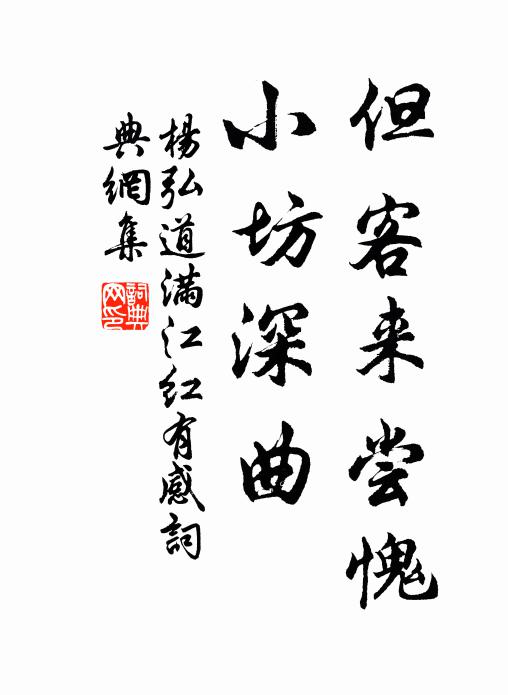 但客来尝愧
小坊深曲
楊弘道满江红有感詞
典網集
詞典网印